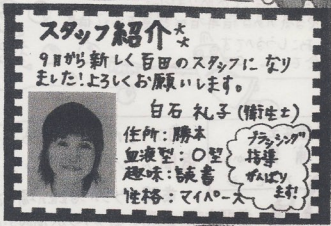 スタッフ紹介
9月から新しく百田のスタッフになり
ました!よろしくお願いします。
白石 礼子(衛生士)
住所:勝本
血液型:O型
趣味:読書
性格:マイペース
ブラッシング
指導
がんばり
ます!